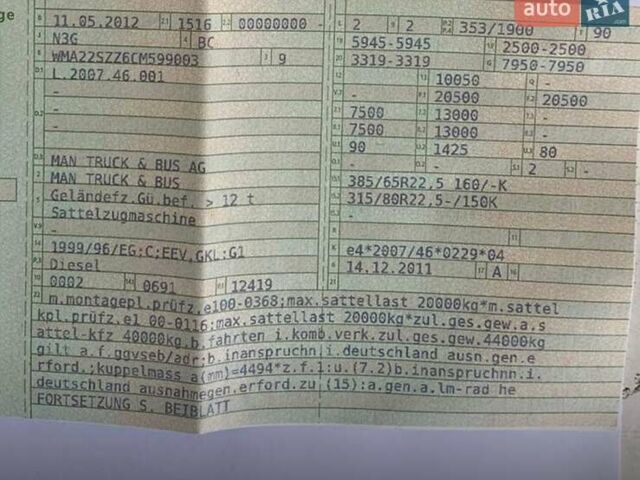 auto RIA.com
11.05.2012 1516 00000000 -
N3G BC
WMA22SZZ6CM599003 9
L.2007.46.001
-
-
-
MAN TRUCK & BUS AG
MAN TRUCK & BUS
Geländefz.Gü.bef. > 12 t
Sattelzugmaschine
-
1999/96/EG;C;EEV,GKL:G1
Diesel
0002 0691 12419
2 2 353/1900 90
5945-5945 2500-2500
3319-3319 7950-7950
- 10050 -
- 20500 20500
7500 13000 -
7500 13000 -
90 1425 80
- - 2 -
385/65R22,5 160/-K
315/80R22,5-/150K
-
-
e4*2007/46*0229*04
14.12.2011 A
m.montagepl.prüfz.e100-0368;max.sattellast 20000kg*m.sattel
kpl.prüfz.e1 00-0116;max.sattellast 20000kg*zul.ges.gew.a.s
attel-kfz 40000kg,b.fahrten i.komb.verk.zul.ges.gew.44000kg
gilt a.f.ggvseb/adr;b.inanspruchn i.deutschland ausn.gen.e
rford.;kuppelmass a(mm)=4494*z.f.1:u.(7.2)b.inanspruchnn.i.
deutschland ausnahmegen.erford.zu (15):a.gen.a.lm-rad he
FORTSETZUNG S. BEIBLATT